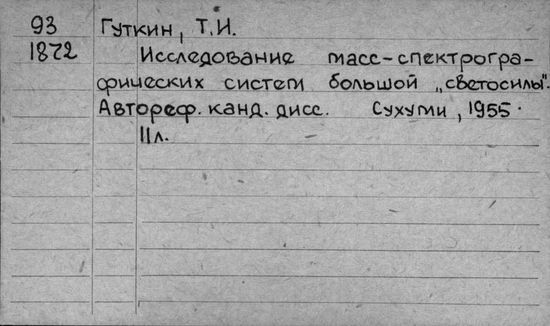 93 Гуткин, Т.И.
1872 Исследование масс-спектрогра-
фических систем большой „светосилы".
Автореф. канд. дисс. Сухуми, 1955.
11л.